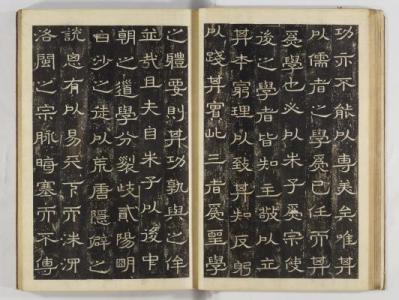 功亦不能以專美矣唯其
以儒者之學爲己任而其
爲學也必以朱子爲宗使
後之學者皆知主敬以立
其本窮理以致其知反躬
以踐其實此三者爲聖學
之體要則其功孰與之侔
並哉且夫自朱子以後中
朝之道學分裂歧貳陽明
白沙之徒以荒唐隱僻之
說思有以易天下而洙泗
洛閩之宗脉晦塞而不傳